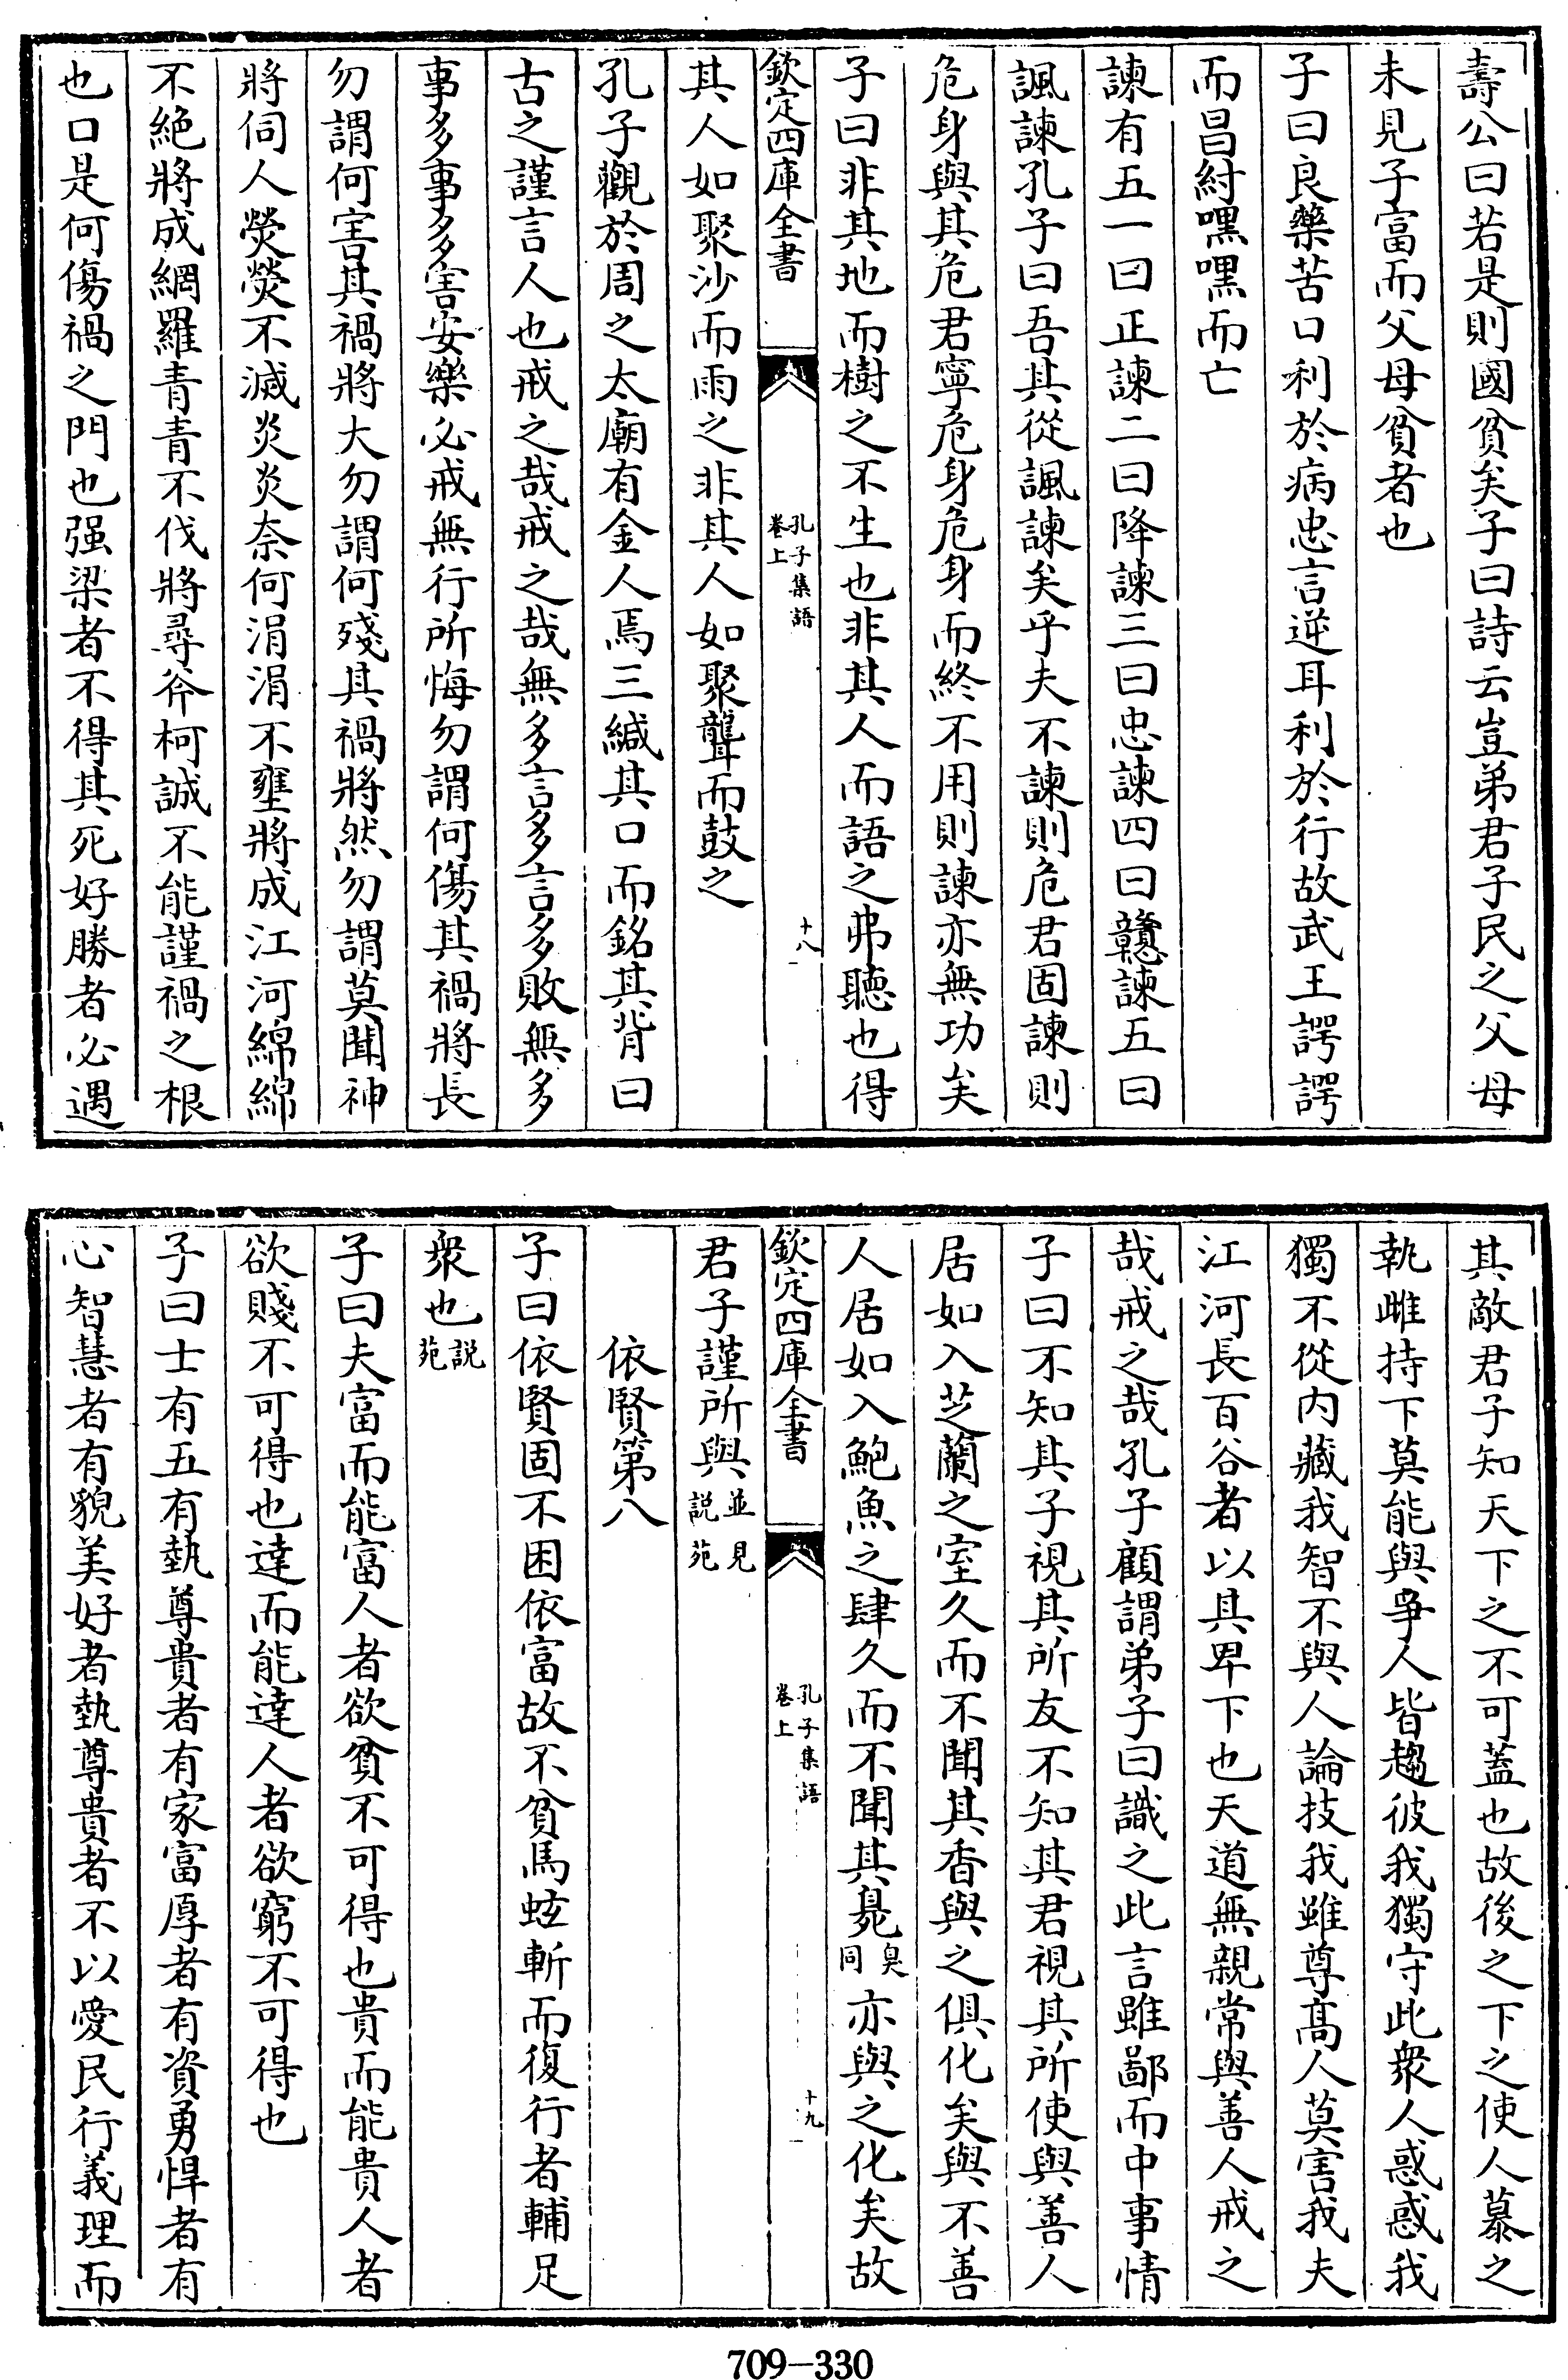 壽公曰若是則國貧矣子曰詩云豈弟君子民之父母
未見子富而父母貧者也
子曰良藥苦口利於病忠言逆耳利於行故武王諤諤
而昌紂嘿嘿而亡
諫有五一曰正諫二曰降諫三曰忠諫四曰戇諫五曰
諷諫孔子曰吾其從諷諫矣乎夫不諫則危君固諫則
危身與其危君寧危身危身而終不用則諫亦無功矣
子曰非其地而樹之不生也非其人而語之弗聽也得
欽定四庫全書 孔子集語卷上 十八
其人如聚沙而雨之非其人如聚聾而鼓之
孔子觀於周之太廟有金人焉三緘其口而銘其背曰
古之謹言人也戒之哉戒之哉無多言多言多敗無多
事多事多害安樂必戒無行所悔勿謂何傷其禍將長
勿謂何害其禍將大勿謂何殘其禍將然勿謂莫聞神
將伺人熒熒不滅炎炎奈何涓涓不壅將成江河綿綿
不絶將成網羅青青不伐將尋斧柯誠不能謹禍之根
也口是何傷禍之門也强梁者不得其死好勝者必遇
其敵君子知天下之不可蓋也故後之下之使人慕之
執雌持下莫能與爭人皆趨彼我獨守此衆人惑惑我
獨不從内藏我智不與人論技我雖尊髙人莫害我夫
江河長百谷者以其卑下也天道無親常與善人戒之
哉戒之哉孔子顧謂弟子曰識之此言雖鄙而中事情
子曰不知其子視其所友不知其君視其所使與善人
居如入芝蘭之室久而不聞其香與之俱化矣與不善
人居如入鮑魚之肆久而不聞其臰臭同亦與之化矣故
欽定四庫全書 孔子集語卷上 十九
君子謹所與並見説苑
依賢第八
子曰依賢固不困依富故不貧馬蚿斬而復行者輔足
衆也説苑
子曰夫富而能富人者欲貧不可得也貴而能貴人者
欲賤不可得也達而能達人者欲窮不可得也
子曰士有五有埶尊貴者有家富厚者有資勇悍者有
心智慧者有貌美好者埶尊貴者不以愛民行義理而
709–330